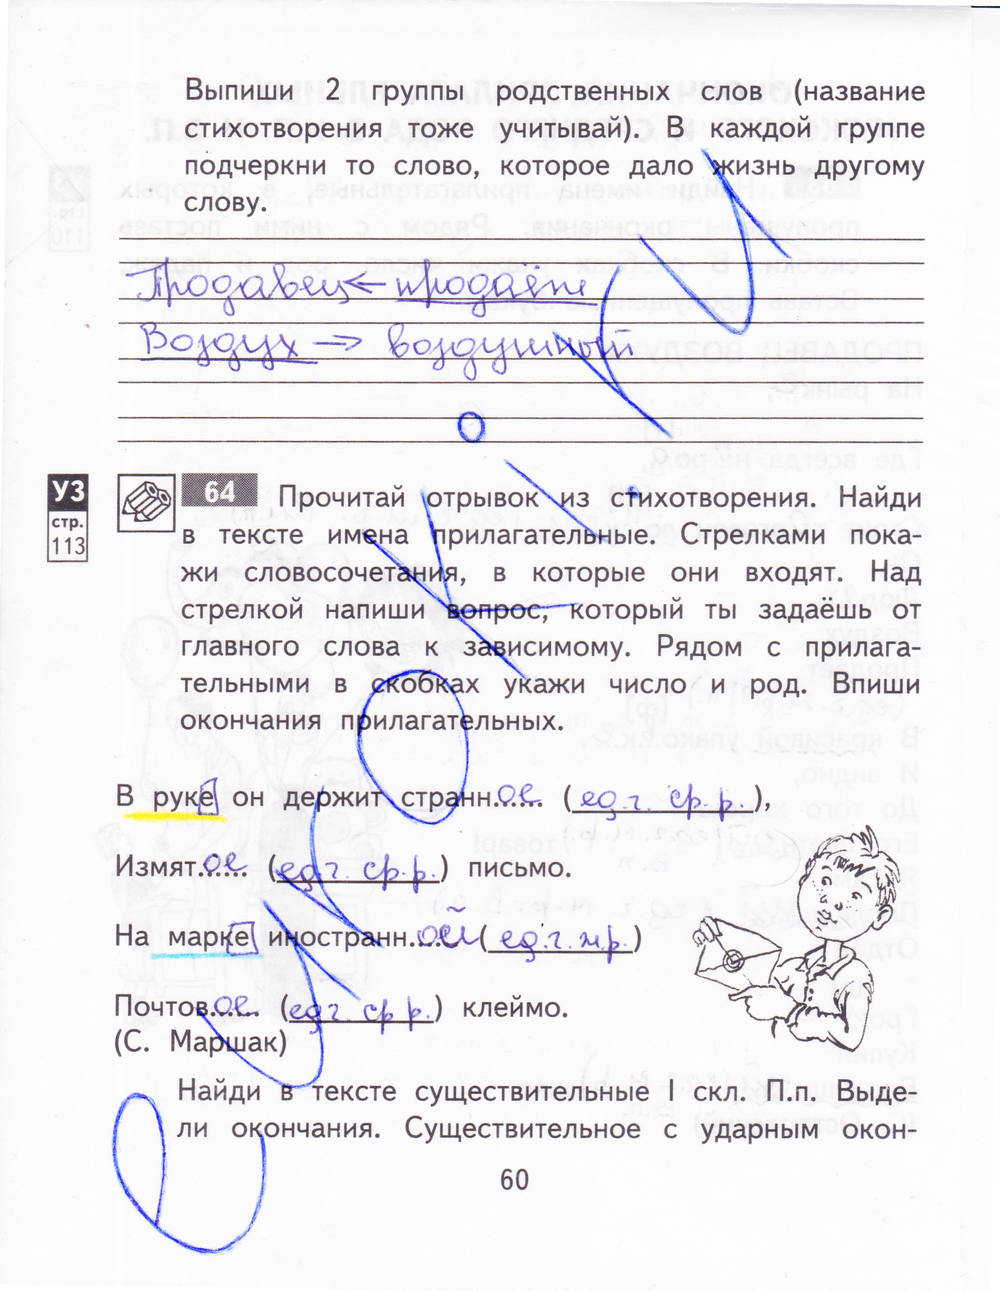 Выпиши 2 группы родственных слов (название
стихотворения тоже учитывай). В каждой группе
подчеркни то слово, которое дало жизнь другому
слову.
Продавец ← продаёте
Воздух → воздушный
УЗ
стр.
113
64 Прочитай отрывок из стихотворения. Найди
в тексте имена прилагательные. Стрелками пока-
жи словосочетания, в которые они входят. Над
стрелкой напиши вопрос, который ты задаёшь от
главного слова к зависимому. Рядом с прилага-
тельными в скобках укажи число и род. Впиши
окончания прилагательных.
В руке он держит странн...ое... (ед.ч. ср.р.),
Измят...ое... (ед.ч. ср.р.) письмо.
На марке иностранн...ой (ед.ч. ж.р.)
Почтов...ое... (ед.ч. ср.р.) клеймо.
(С. Маршак)
Найди в тексте существительные I скл. П.п. Выде-
ли окончания. Существительное с ударным окон-
60